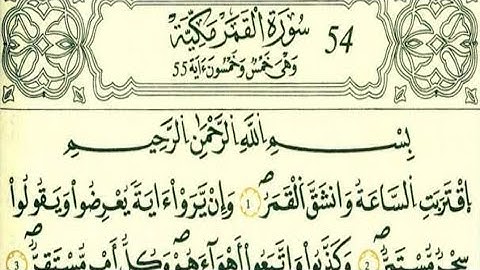 سُورَةُ الْقَمَرِ مَكِّيَّة 54
وَهْيَ خَمْسٌ وَخَمْسُونَ ءَايَة 55
بِسْمِ اِللَّهِ اِلرَّحْمَٰنِ اِلرَّحِيمِ
اِقْتَرَبَتِ اِلسَّاعَةُ وَانشَقَّ اَلْقَمَرُۖ 1 وَإِنْ يَّرَوْاْ ءَايَةً يُعْرِضُواْ وَيَقُولُواْ
سِحْرٌ مُّسْتَمِرٌّۖ 2 وَكَذَّبُواْ وَاتَّبَعُواْ أَهْوَآءَهُمْۖ وَكُلُّ أَمْرٍ مُّسْتَقِرٌّۖ 3